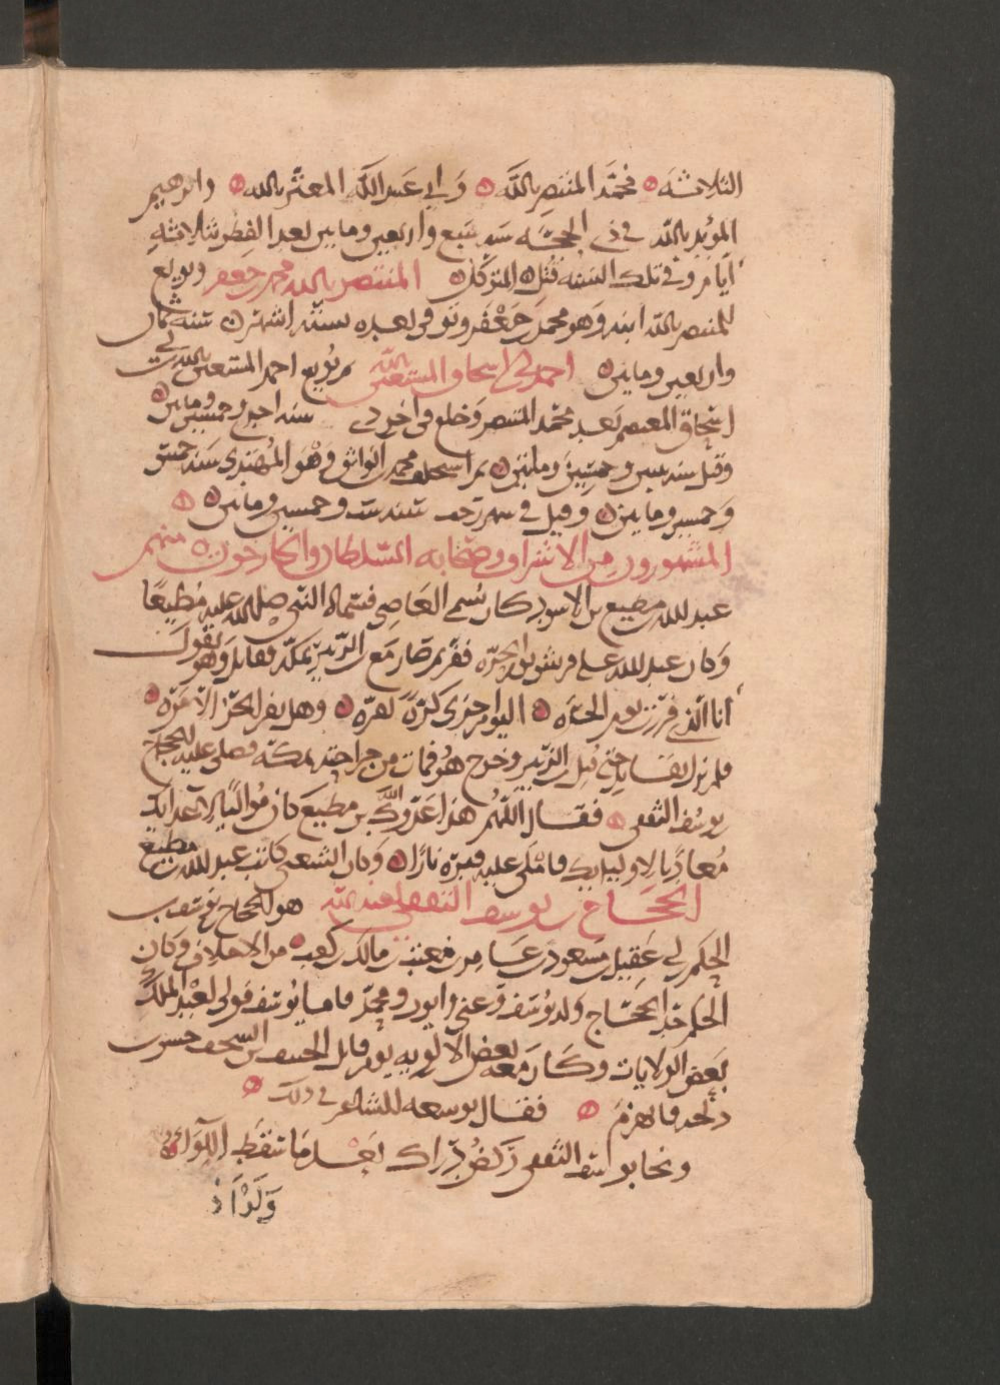 الثلاثه محمد المنتصر بالله وابي عبد الله المعتز بالله وابرهيم
المويد بالله في ذي الحجه سنه سبع واربعين ومايتين بعد الفطر بثلاثه
ايام وفي تلك السنه قتل المتوكل المنتصر بالله محمد جعفر وبويع
للمنتصر بالله ابنه وهو محمد بن جعفر وتوفي بعده بستة اشهر سنه ثمان
واربعين ومايتين احمد بن اسحاق المستعين بالله ثم بويع احمد المستعين بالله بن
اسحاق المعتصم بعد محمد المنتصر وخلع في اخر سنه احدي وخمسين ومايتين
وقتل سنه وخمسين ومايتين ثم استخلف محمد بن الواثق وهو المهتدي سنه خمس
وخمسين ومايتين وقتل في سنه ست وخمسين ومايتين
المشهورون من الاشراف وصحابه السلطان والخارجون منهم
عبد الله بن مطيع بن الاسود كان يسمى العاصي فسماه النبي صلى الله عليه مطيعا
وكان عبد الله على قريش يوم الحره ففر ثم صار مع ابن الزبير بمكة فقاتل وهو يقول
انا الذي فررت يوم الحره اليوم اجزي كرة بفره وهل يفر الحر الا مره
فلم يزل يقاتل حتى قتل ابن الزبير وخرج هو فمات من جراحته بمكة فصلى عليه الحجاج
بن يوسف الثقفي فقال اللهم هذا عدوك بن مطيع كان مواليا لاعدايك
معاديا لاوليايك فاملى عليه قبره نارا وكان الشعبي كاتب عبد الله بن مطيع
الحجاج بن يوسف الثقفي لعنه الله هو الحجاج بن يوسف بن
الحكم بن ابي عقيل بن مسعود بن عامر بن معتب بن مالك بن كعب من الاحلاف وكان
الحكم جد الحجاج ولد يوسف وعني وايوب ومحمد فاما يوسف فولى لعبد الملك
بعض الولايات وكان معه بعض الالويه يوم قاتل الحنتف بن السجف حبيش بن
دلجه فانهزم فقال يوسف للشاعر في ذلك
ونجا يوسف الثقفي ركض دراك بعد ما سقط اللواء
ولو اد